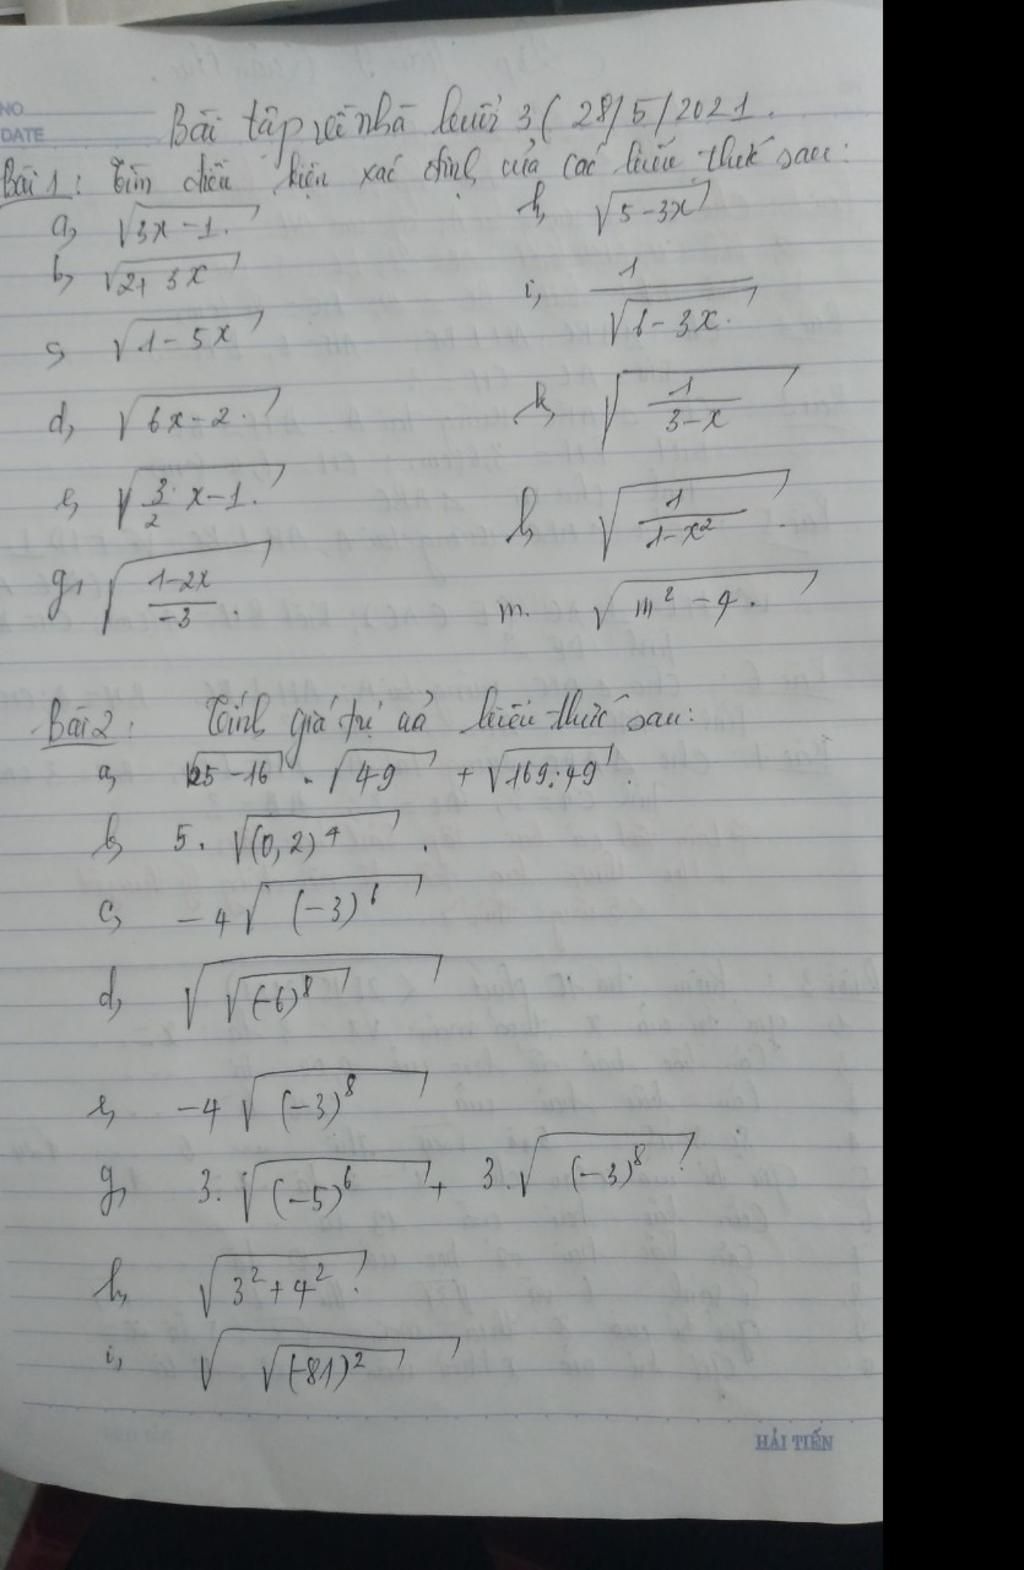 NO
DATE
Bài tập về nhà buổi 3 ( 28/5/2021.
Bài 1: Tìm điều kiện xác định của các biểu thức sau:
a, √(3x-1)
h, √(5-3x)
b, √(2+3x)
i, 1/√(1-3x)
c, √(1-5x)
d, √(6x-2)
k, √(1/(3-x))
e, √(3/2 x-1)
l, √(1/(1-x²))
g, √((1-2x)/-3)
m. √(m²-9)
Bài 2: Tính giá trị của biểu thức sau:
a, √(25-16) . √49 + √(169:49).
b, 5. √((0,2)⁴).
c, -4√((-3)⁶)
d, √(√((-6)⁸))
e, -4√((-3)⁸)
g, 3.√((-5)⁶) + 3.√((-3)⁸)
h, √(3²+4²)
i, √(√((-81)²))
HẢI TIẾN